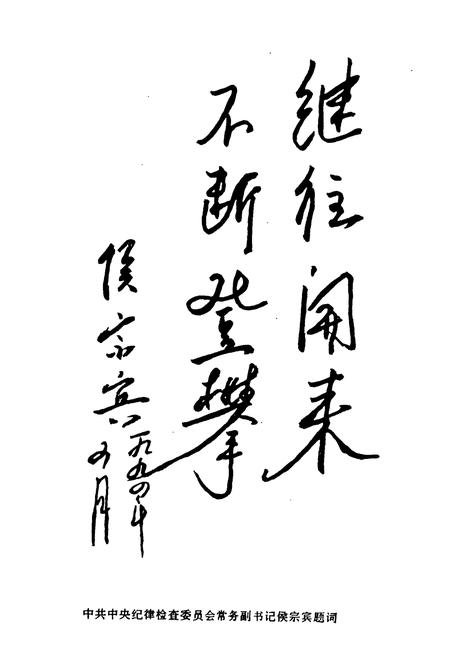 继往开来
不断登攀
侯宗宾
一九九四年
五月
中共中央纪律检查委员会常务副书记侯宗宾题词